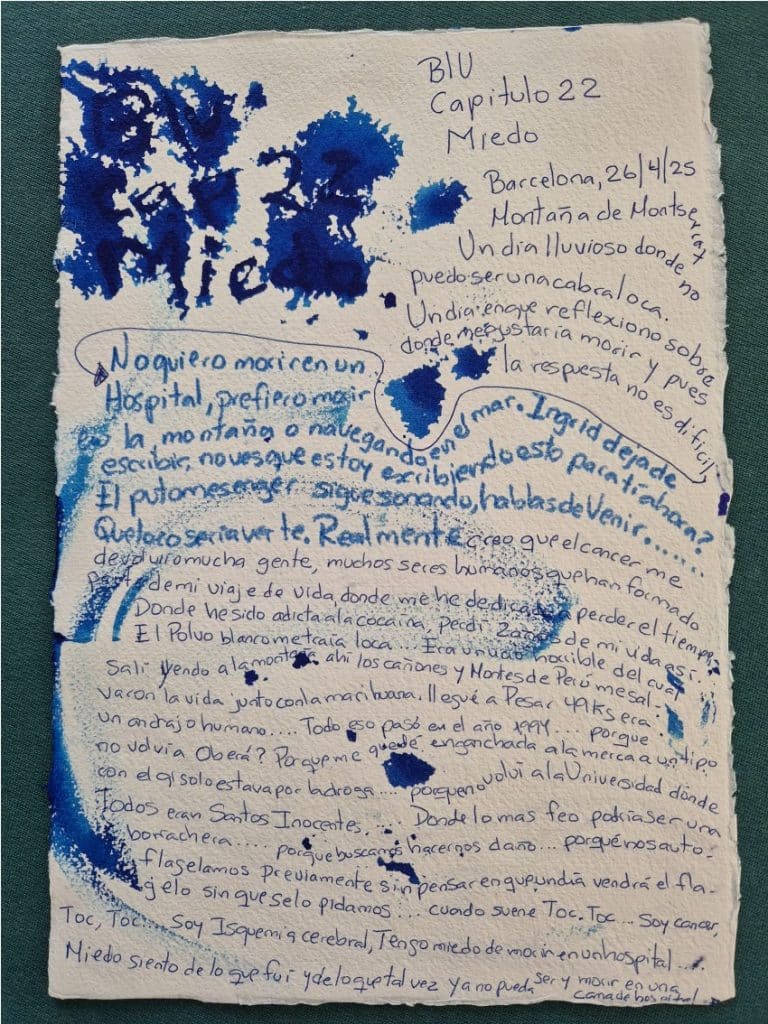 Blu
cap 22
Miedo
BlU
Capitulo 22
Miedo
Barcelona, 26/4/25
Montaña de Montserrat
Un dia lluvioso donde no
puedo ser una cabra loca.
Un dia en que reflexiono sobre
donde me gustaria morir y pues
la respuesta no es dificil,
No quiero morir en un
Hospital, prefiero morir
en la montaña o navegando en el mar. Ingrid deja de
escribir, no ves que estoy escribiendo esto para ti ahora?
El puto mesenger sigue sonando, hablas de Venir.......
Que loco seria verte. Realmente creo que el cancer me
devolvio mucha gente, muchos seres humanos que han formado
parte de mi viaje de vida, donde me he dedicado a perder el tiempo,
Donde he sido adicta a la cocaina, perdi 2 años de mi vida asi...
El Polvo blanco me traia loca... Era un vicio horrible del cual
Sali yendo a la montaña ahi los cañones y Montes de Perú me sal-
varon la vida junto con la marihuana. llegué a Pesar 49 Ks era
un andrajo humano.... Todo eso pasó en el año 1994.... porque
no volvi a Oberá? Porque me quedé enganchada a la merca a un tipo
con el ql solo estava por la droga.... porque no volvi a la Universidad donde
Todos eran Santos Inocentes..... Donde lo mas feo podria ser una
borrachera..... porque buscamos hacernos daño... porqué nos auto-
flagelamos previamente sin pensar en que un dia vendrá el fla-
gelo sin que se lo pidamos... cuando suene Toc. Toc... Soy cancer,
Toc, Toc... Soy Isquemia cerebral, Tengo miedo de morir en un hospital....
Miedo siento de lo que fui y de lo que tal vez ya no pueda ser y morir en una
cama de hospital.